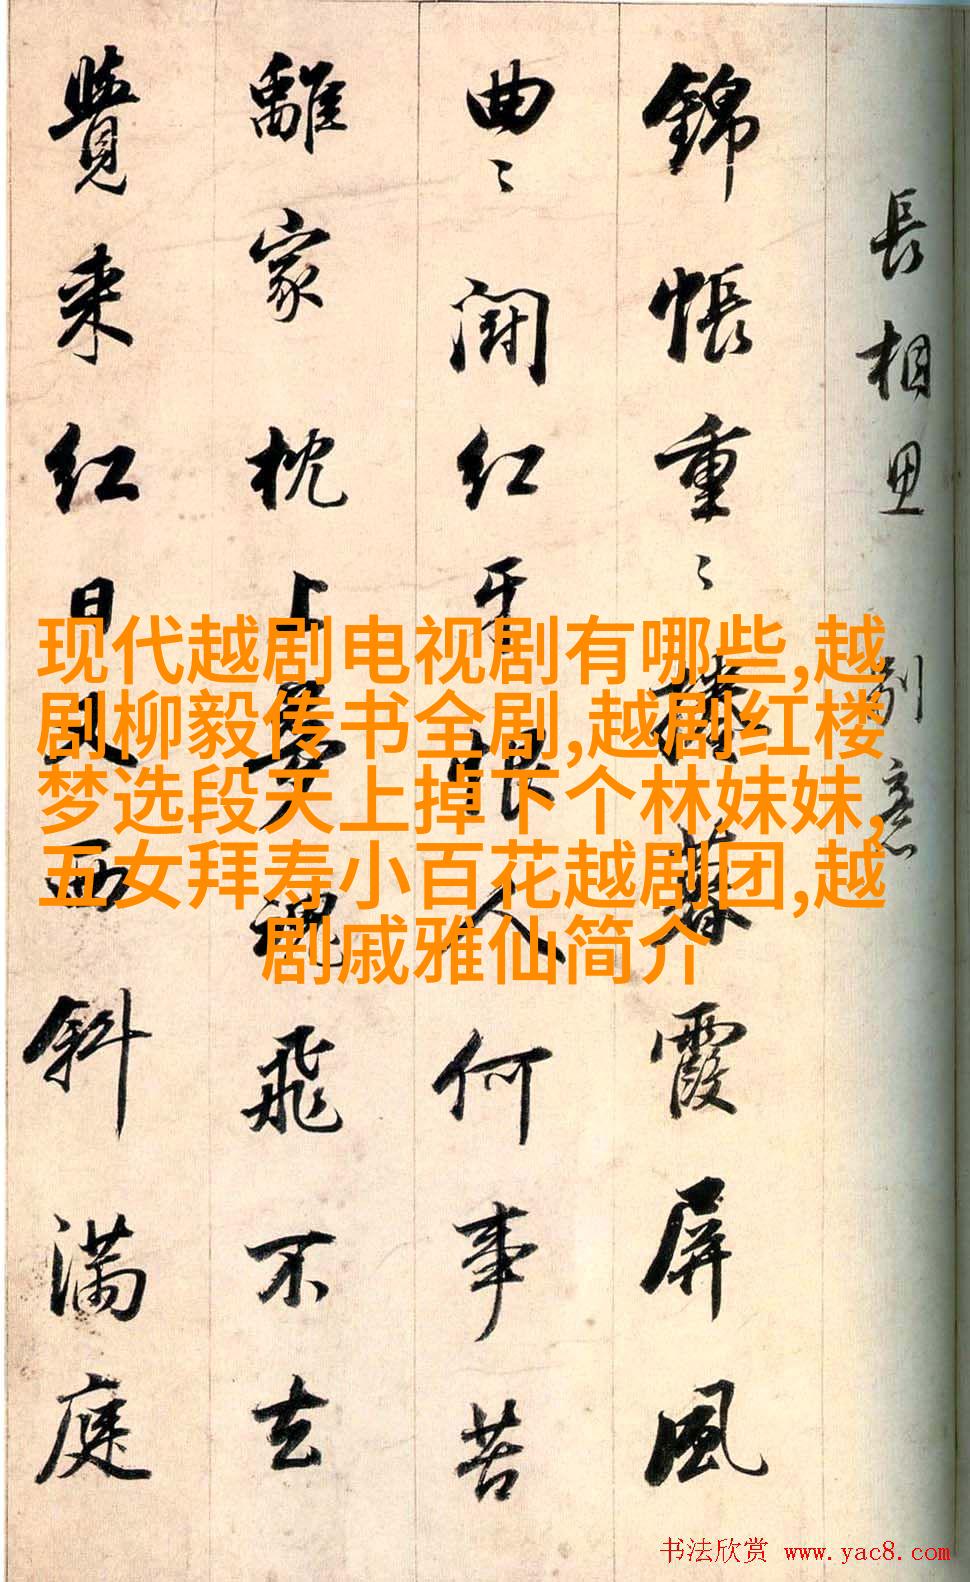 長相思 别意
錦帳重〻捲暮霞屏風
曲〻鬪红牙恨人何事苦
離家枕上夢魂飛不去
覺来红日又西斜满庭
现代越剧电视剧有哪些,越
剧柳毅传书全剧,越剧红楼
梦选段天上掉下个林妹妹,
五女拜寿小百花越剧团,越
剧戚雅仙简介
书法欣赏 www.yac8.com